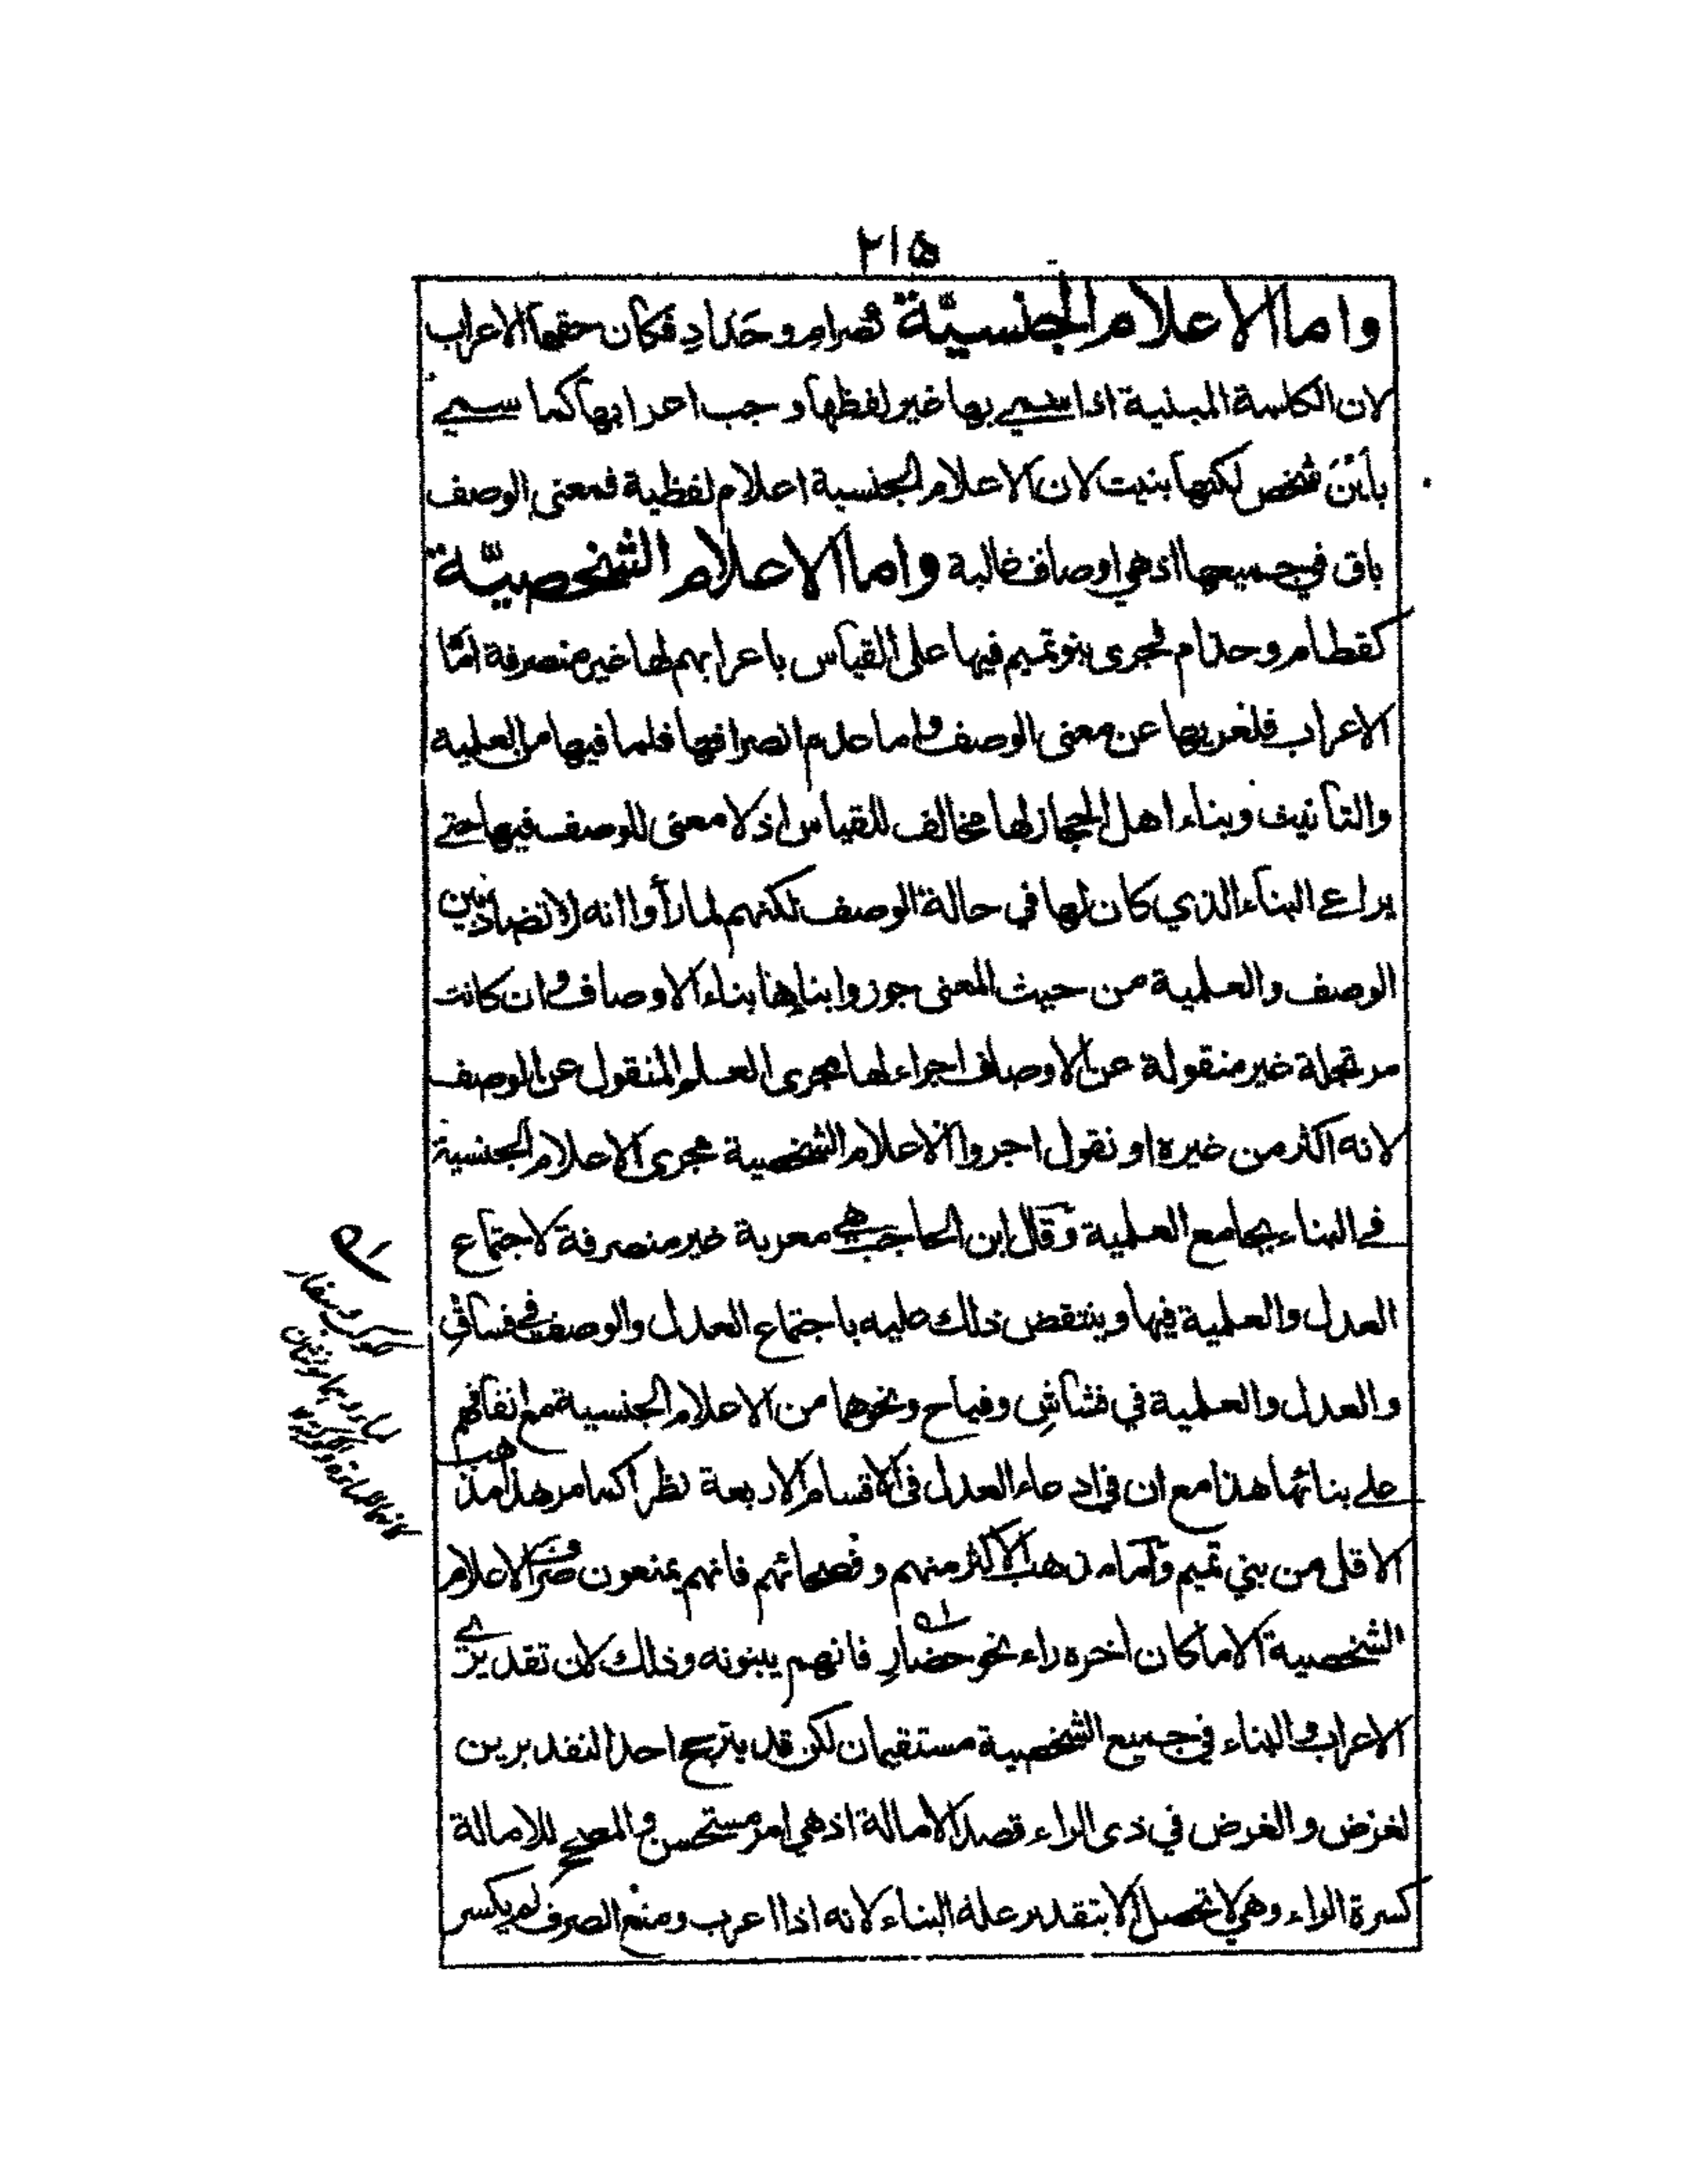 ٢١۵
واما الاعلام الجنسيّة كصرامِ وحَدادِ فكان حقها الاعراب
لان الكلمة المبنية اذا سمي بها غير لفظها وجب اعرابها كما سمي
بأَيْنَ شخص لكنها بنيت لان الاعلام الجنسية اعلام لفظية فمعنى الوصف
باق في جميعها اذ هي اوصاف غالبة واما الاعلام الشخصيّة
كقطام وحذام فجرى بنو تميم فيها على القياس باعرابهم لها غير منصرفة امّا
الاعراب فلعريها عن معنى الوصف واما عدم انصرافها فلما فيها من العلمية
والتأنيث وبناء اهل الحجاز لها مخالف للقياس اذ لا معنى للوصف فيها حتے
يراعے البناء الذي كان لها في حالة الوصف لكنهم لما رأوا انه لا تضاد بين
الوصف والعلمية من حيث المعنى جوزوا بناءها بناء الاوصاف وان كانت
مرتجلة غير منقولة عن الاوصاف اجراء لها مجرى العلم المنقول عن الوصف
لانه اكثر من غيره او نقول اجروا الاعلام الشخصية مجرى الاعلام الجنسية
في البناء بجامع العلمية وقال ابن الحاجب هي معربة غير منصرفة لاجتماع
العدل والعلمية فيها وينتقض ذلك عليه باجتماع العدل والوصف في فساقِ
والعدل والعلمية في فشاشِ وفياح ونحوهما من الاعلام الجنسية مع اتفاقهم
علے بنائها هذا مع ان في ادعاء العدل في الاقسام الاربعة نظرا كما مر هذا مذهب
الاقل من بني تميم واما مذهب الاكثر منهم وفصحائهم فانهم يمنعون صرف الاعلام
الشخصية الا ما كان اخره راء نحو حضارِ فانهم يبنونه وذلك لان تقديرے
الاعراب والبناء في جميع الشخصية مستقيمان لكن قد يترجح احد التقديرين
لغرض والغرض في ذى الراء قصد الامالة اذ هي امر مستحسن والمصحح للامالة
كسرة الراء وهي لا تحصل الا بتقدير علة البناء لانه اذا اعرب ومنع الصرف لم يكسر